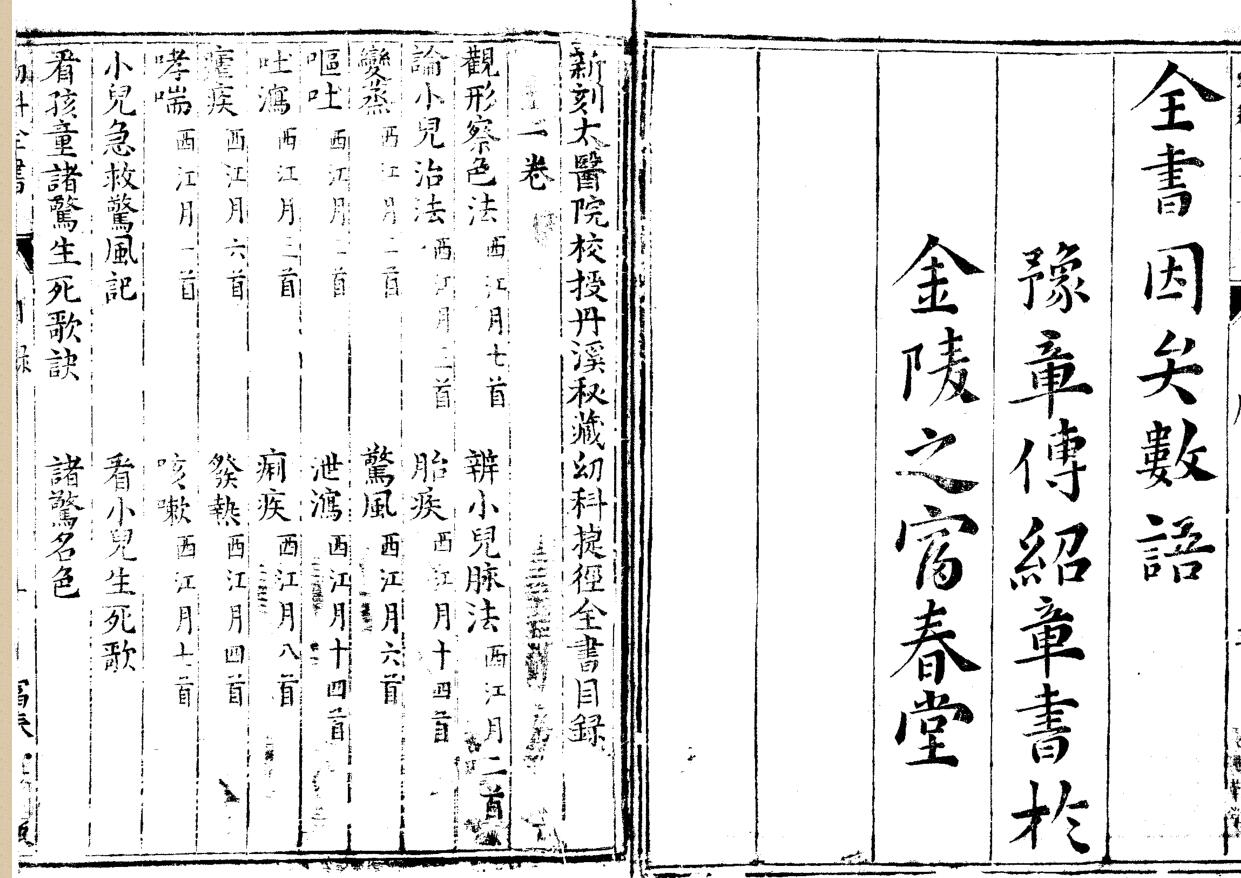 全書因矣數語
豫章傳紹章書於
金陵之富春堂
新刻太醫院校授丹溪秘藏幼科捷徑全書目錄
一卷
觀形察色法 西江月七首 辨小兒脉法 西江月二首
論小兒治法 西江月二首 胎疾 西江月十四首
變蒸 西江月二首 驚風 西江月六首
嘔吐 西江月二首 泄瀉 西江月十四首
吐瀉 西江月二首 痢疾 西江月八首
瘧疾 西江月六首 發熱 西江月四首
哮喘 西江月一首 咳嗽 西江月七首
小兒急救驚風記 看小兒生死歌
看孩童諸驚生死歌訣 諸驚名色